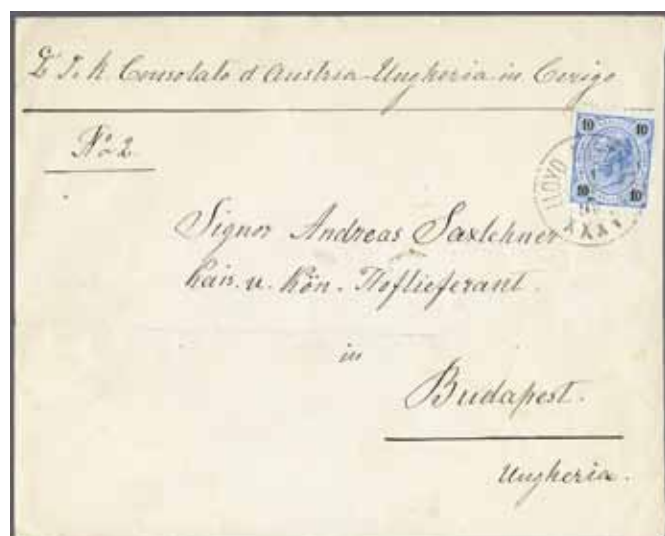 I. R. Consolato d'Austria-Ungheria in Cerigo
10 10
10 10
LLOYD
No 2
Signor Andreas Saxlehner
kais. u. Kön. Hoflieferant.
in
Budapest.
Ungheria.